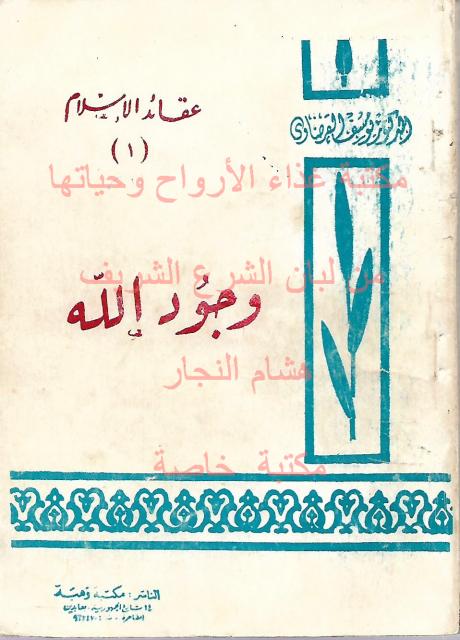 عقائد الإسلام
(١)
الدكتور يوسف القرضاوى
مكتبة غذاء الأرواح وحياتها
من لبان الشرع الشريف
وجود الله
هشام النجار
مكتبة خاصة
الناشر : مكتبة وهبة
١٤ شارع الجمهورية - عابدين
القاهرة - ت :